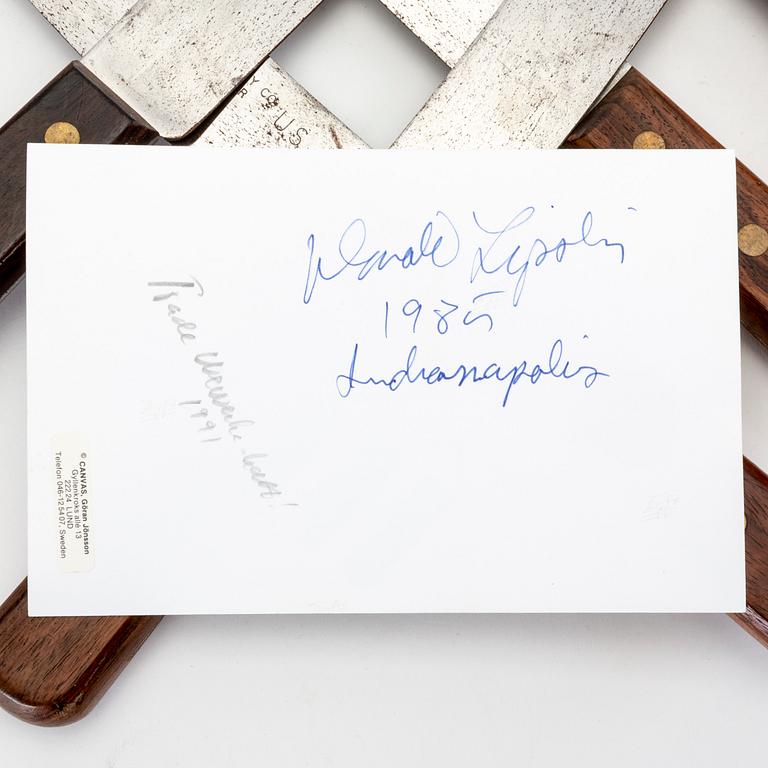 Y CO. U.S.
R
Donald Lipski
1985
Indianapolis
Trade
1991
© CANVAS, Göran Jönsson
Gyllenkroks allé 13
222 24 LUND
Telefon 046-12 54 07, Sweden